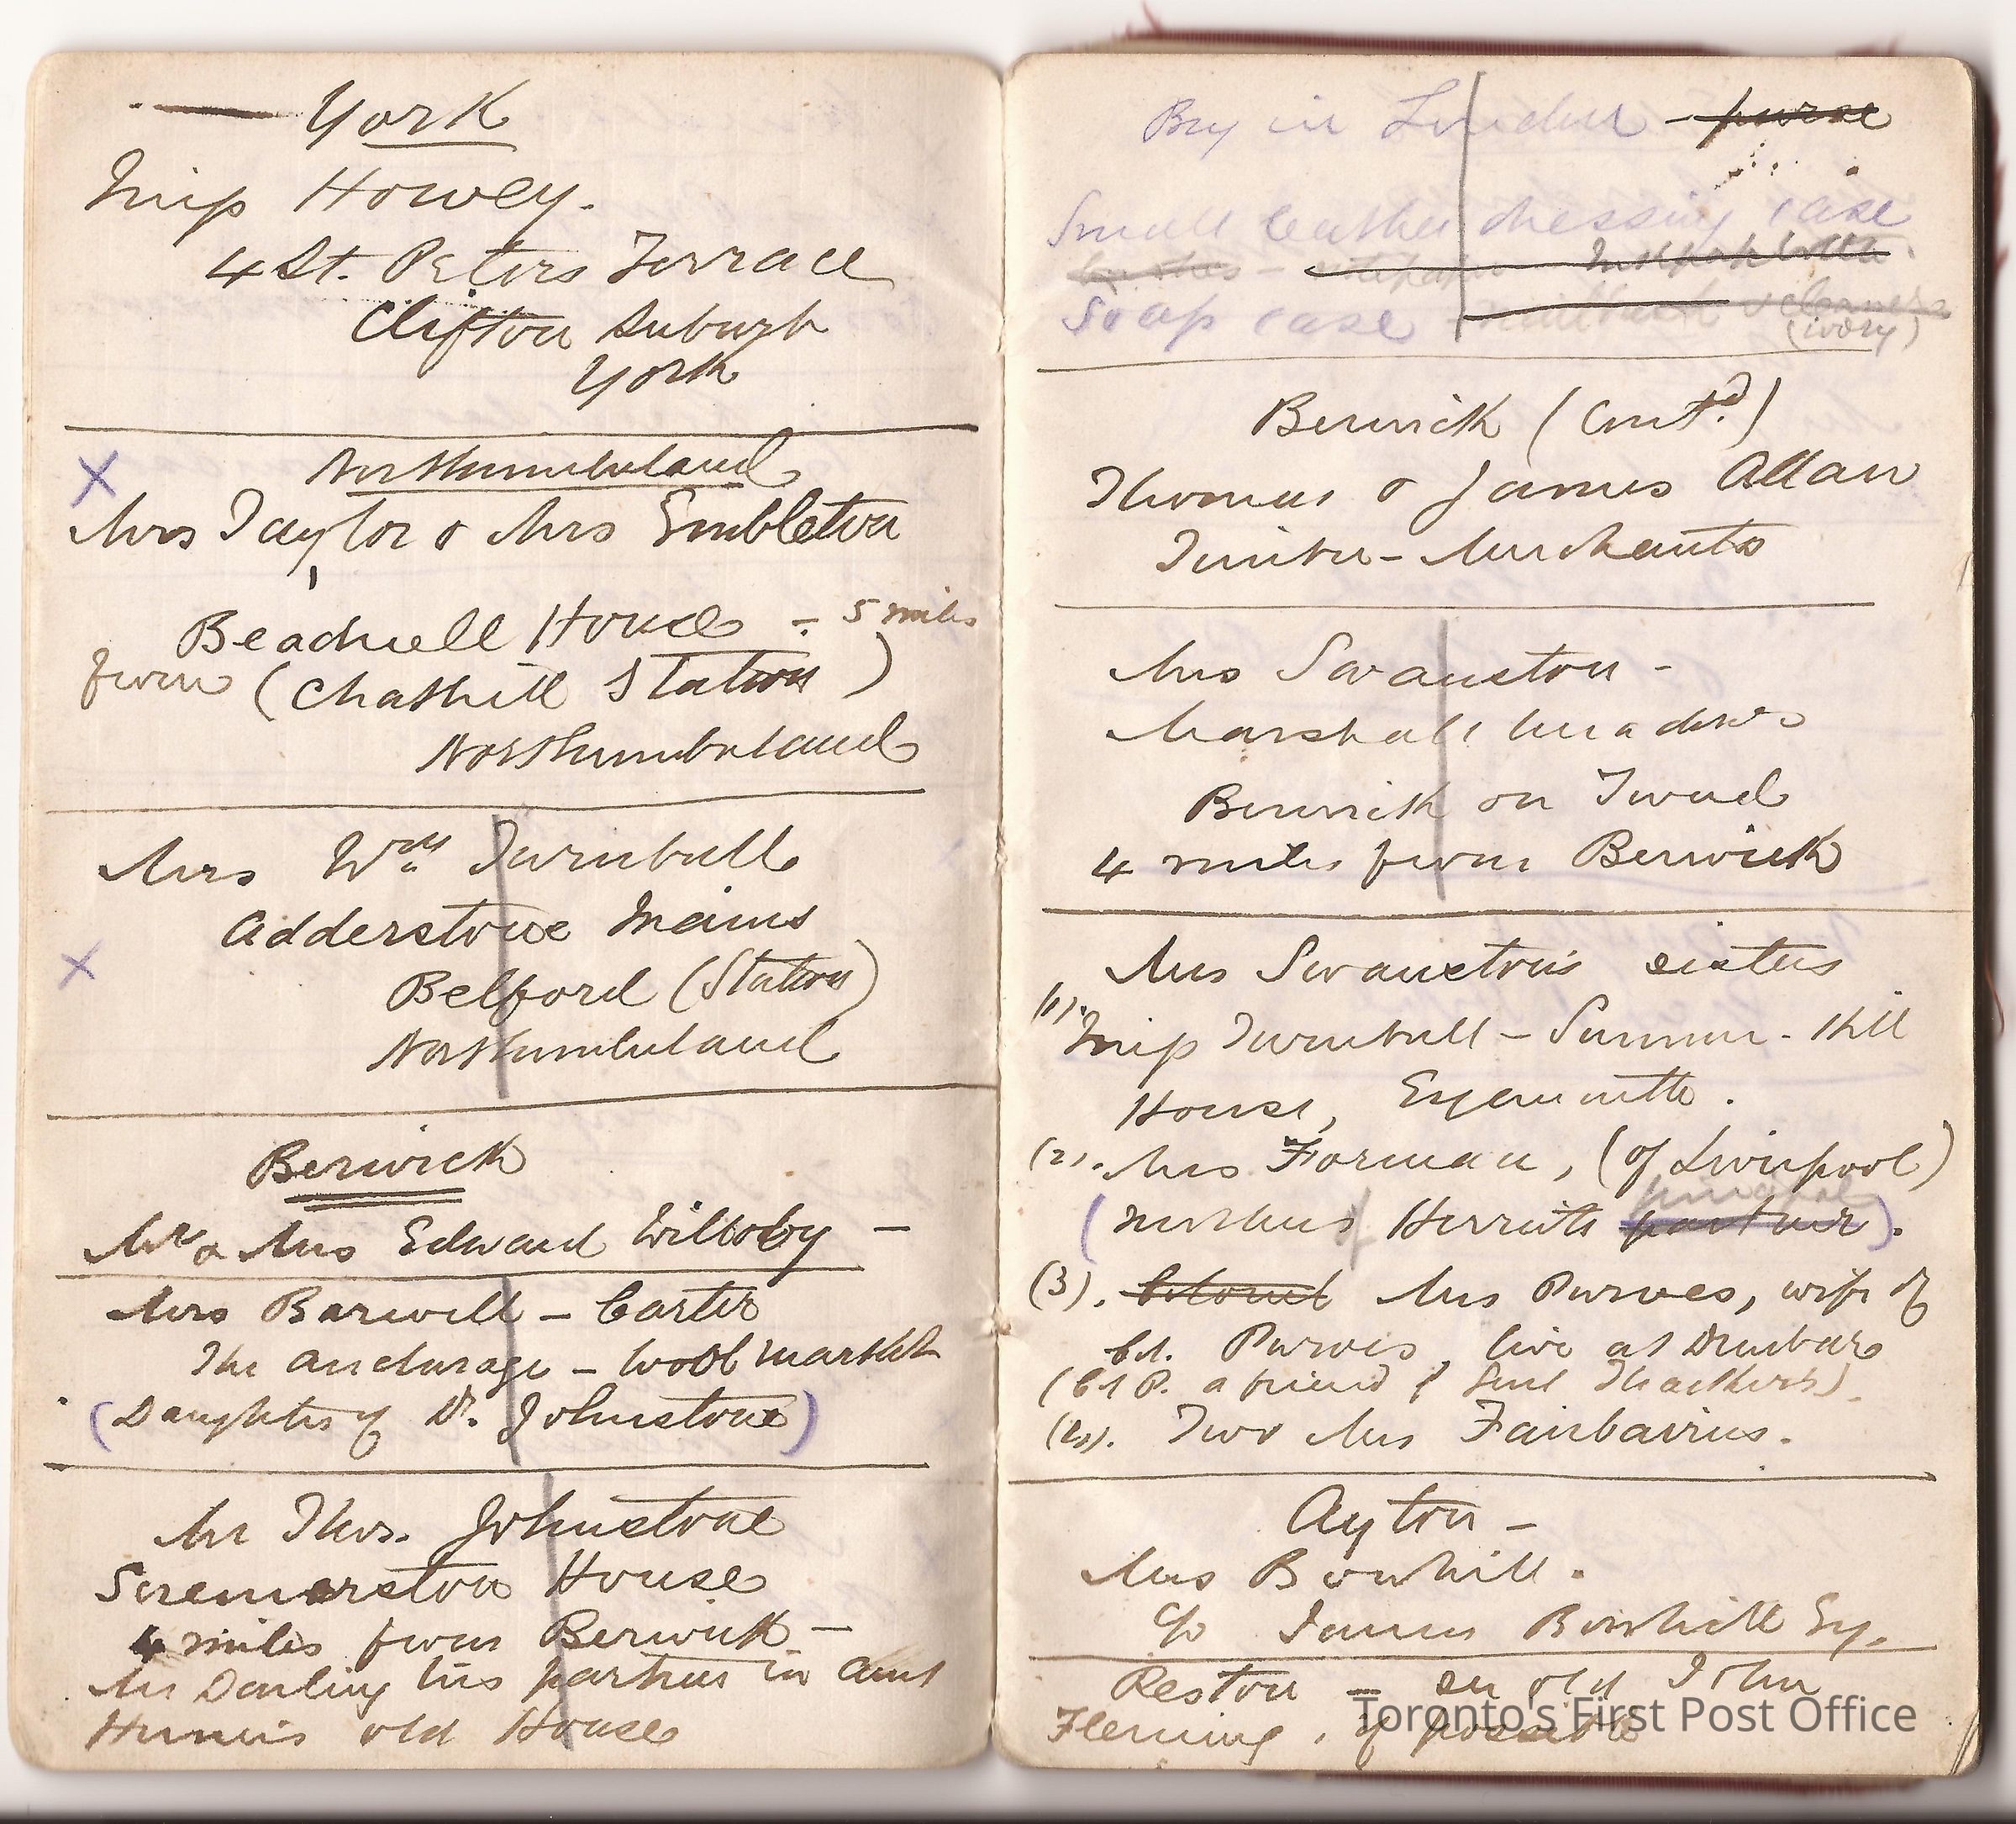 York
Miss Howey.
4 St. Peters Terrace
Clifton Suburb
York
Northumberland
Mrs Taylor & Mrs Embleton
Beadnell House - 5 miles
from (Chathill Station)
Northumberland
Mrs Wm Turnbull
Adderstone Mains
Belford (Station)
Northumberland
Berwick
Mr & Mrs Edward Willoby -
Mrs Barwell - Carter
The anchorage - Wool market
(Daughter of Dr. Johnstone)
Mr Thos. Johnstone
Scremerston House
4 miles from Berwick -
Mr Darling his partner in Aunt
Hume's old House
Buy in London - purse
Small leather dressing case
brushes - Ink bottle.
Soap case
(ivory)
Berwick (Cont'd.)
Thomas & James Allan
Timber - Merchants
Mrs Swanston -
Marshall Meadows
Berwick on Tweed
4 miles from Berwick
Mrs Swanston's sisters
(1). Miss Turnbull - Summer - Hill
House, Eyemouth.
(2). Mrs Forman, (of Liverpool)
(mother of Herriots partner principal).
(3). Colonel Mrs Purves, wife of
Col. Purves, live at Dunbar
(Col P. a friend of Genl Thackwell).
(4). Two Mrs Fairbairns.
Ayton -
Mrs Bowhill.
c/o James Bowhill Esq.
Reston - see old John
Fleming, if possible
Toronto's First Post Office